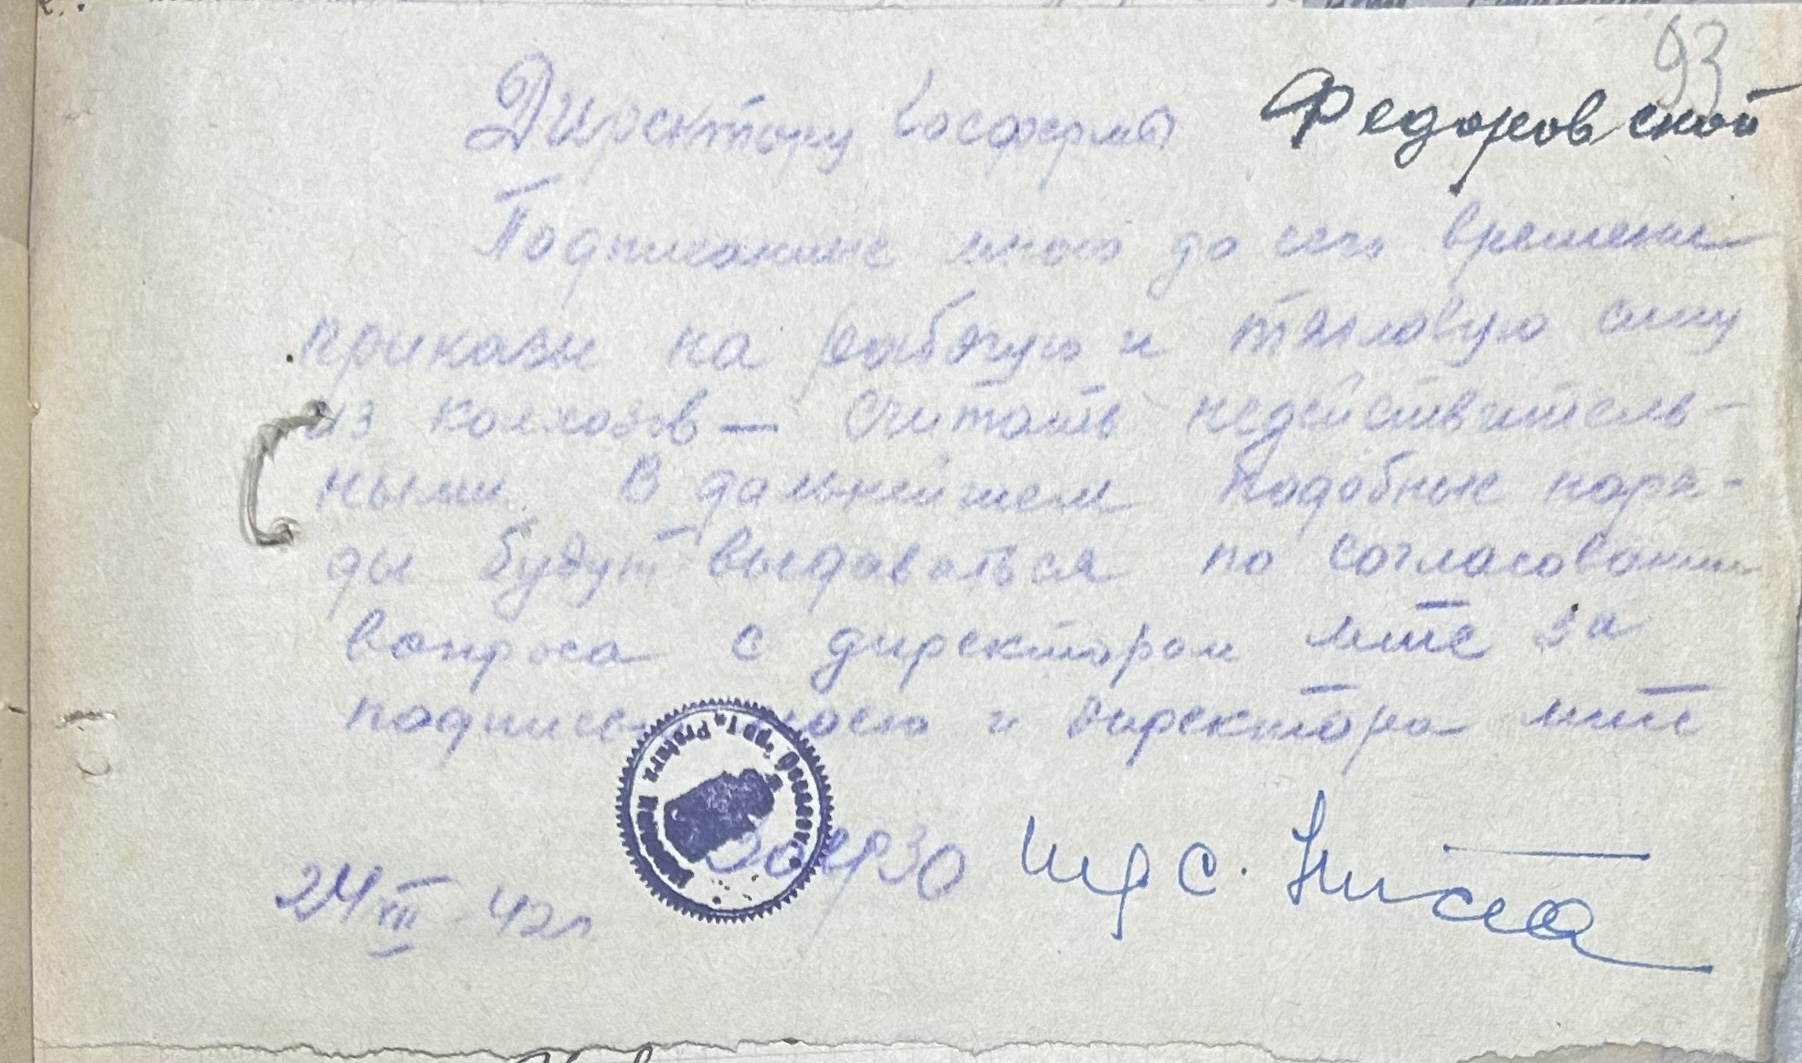 93
Директору Госфермы Федоровской
Подписанные мною до сего времени
приказы на рабочую и тягловую силу
из колхозов — считать недействитель-
ными. В дальнейшем подобные наря-
ды будут выдаваться по согласовании
вопроса с директором МТС за
подписью моею и директора МТС
24 III 42 г.